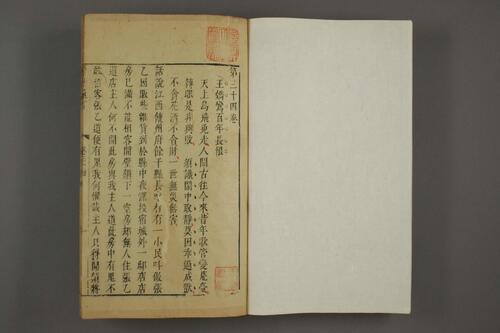 第三十四卷
王嬌鸞百年長恨
天上烏飛兎走人間古往今來昔年歌管變荒臺
轉眼是非興敗　須識鬧中取靜莫因乖過成獃
不貪花酒不貪財一世無災無害
話說江西饒州府餘干縣長樂村有一小民叫做張
乙因販些雜貨到於縣中夜深投宿城外一邸店店
房已滿不能相容間壁鎖下一空房却無人住張乙
道店主人何不開此房與我主人道此房中有鬼不
敢留客張乙道便有鬼我何懼哉主人只得開鎖將